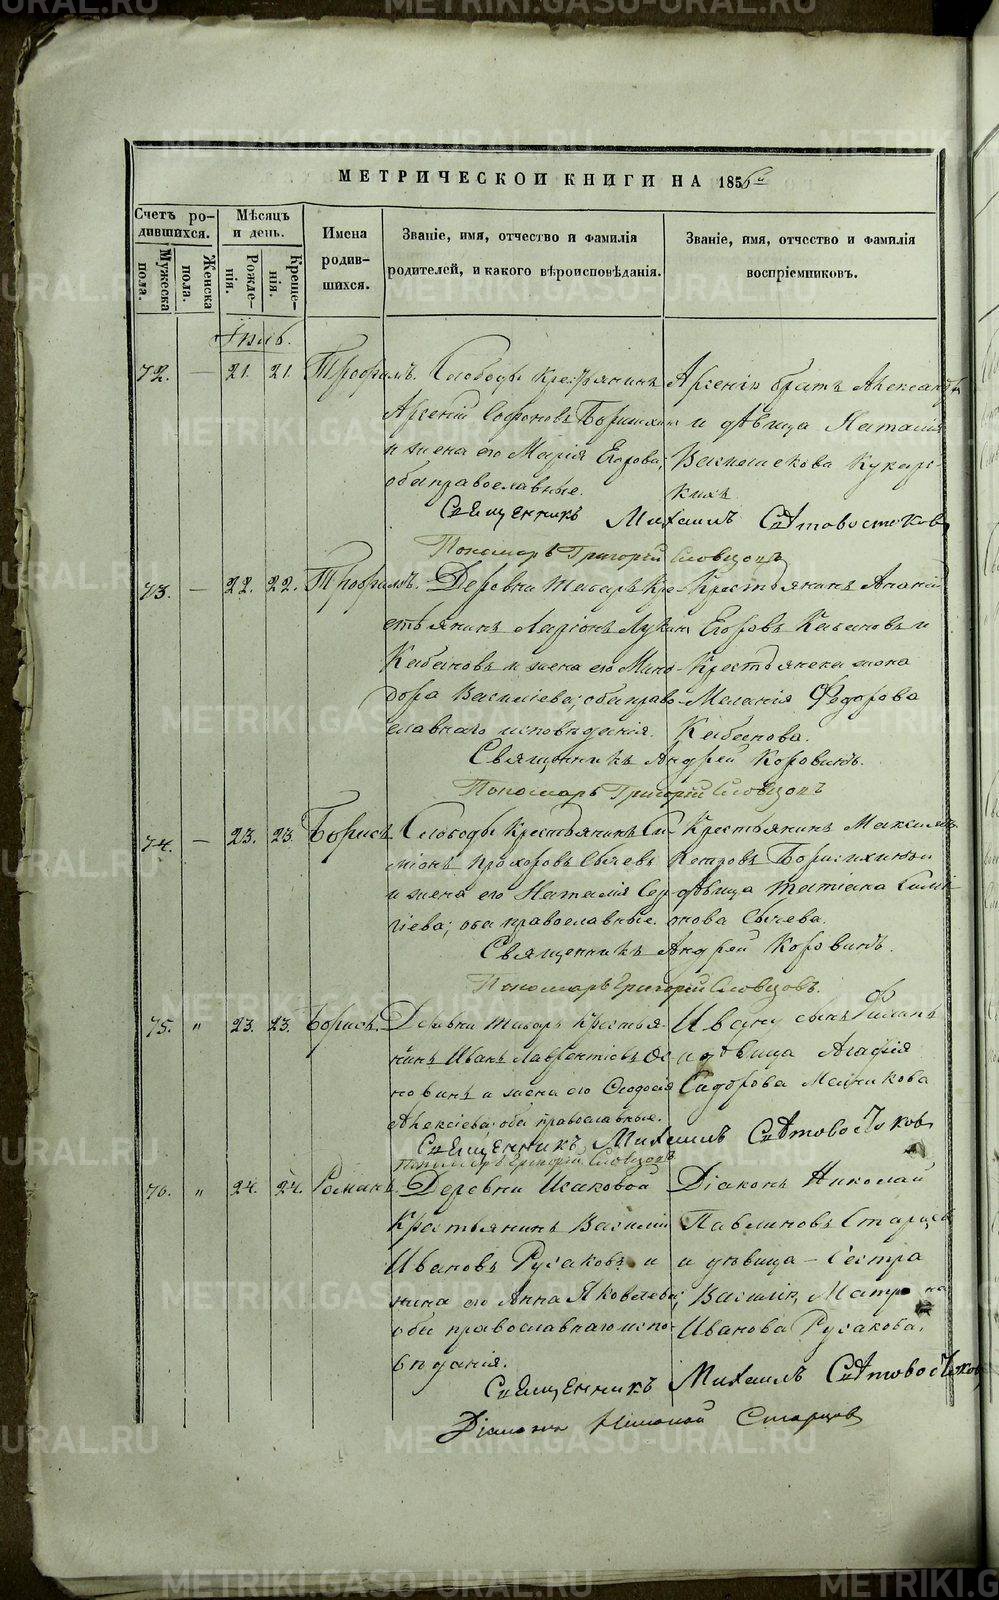 МЕТРИЧЕСКОЙ КНИГИ НА 1856й
Счетъ родившихся.
Мѣсяцъ и день.
Имена родившихся.
Званіе, имя, отчество и фамилія родителей, и какого вѣроисповѣданія.
Званіе, имя, отчество и фамилія воспріемниковъ.
Мужеска пола.
Женска пола.
Рожденія.
Крещенія.
72. — 21. 21. Трофимъ. Слободы Крестьянинъ
Арсеній Софроновъ Борисихинъ
и жена его Марія Егорова;
оба православные.
Арсенія братъ Александръ
и дѣвица Наталія
Кукар-
скихъ
Священникъ Михаилъ Святовостоковъ
Пономарь Григорій Словцовъ
73. — 22. 22. Трофимъ. Деревни Таборъ Кре-
стьянинъ Ларіонъ Лукинъ
Кабановъ и жена его Мино-
дора Васильева; оба право-
славнаго исповѣданія.
Крестьянинъ Ананій
Егоровъ Кабановъ и
Крестьянска жена
Меланія Федорова
Кабанова.
Священникъ Андрей Коровинъ.
Пономарь Григорій Словцовъ
74. — 23. 23. Борисъ Слободы Крестьянинъ Си-
міонъ Прохоровъ Сычевъ
и жена его Наталія Сер-
гіева; оба православные.
Крестьянинъ Максимъ
Петровъ Борисихинъ и
дѣвица Татіана Симі-
онова Сычева.
Священникъ Андрей Коровинъ.
Пономарь Григорій Словцовъ.
75. " 23. 23. Борисъ. Деревни Таборъ Крестья-
нинъ Иванъ Лаврентіевъ Ос-
новинъ и жена его Феодосія
Алексіева; оба православные.
Ивану сынъ
и дѣвица Агафія
Сидорова Мальчикова
Священникъ Михаилъ Святовостоковъ
Пономарь Григорій Словцовъ
76. " 24. 24. Романъ. Деревни Исаковой
Крестьянинъ Василій
Ивановъ Русаковъ и
жена его Анна Яковлева;
оба православнаго испо-
вѣданія.
Діаконъ Николай
Павлиновъ Старцевъ
и дѣвица – сестра
Василія, Матрона
Иванова Русакова.
Священникъ Михаилъ Святовостоковъ
Діаконъ Николай Старцевъ
METRIKI.GASO-URAL.RU